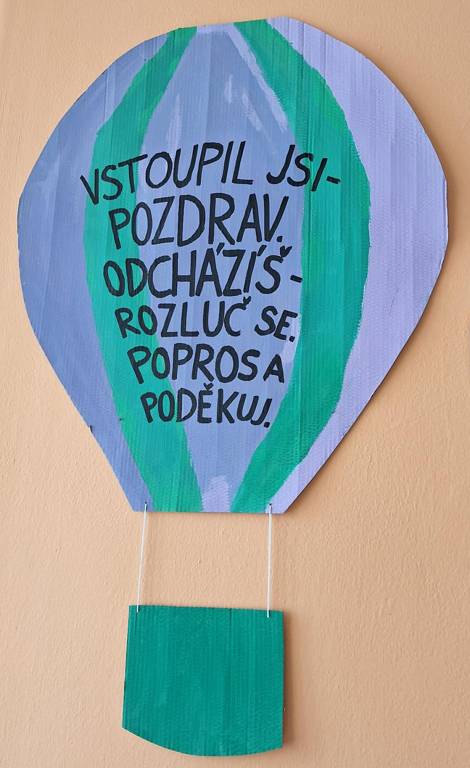 VSTOUPIL JSI-
POZDRAV.
ODCHÁZÍŠ-
ROZLUČ SE.
POPROS A
PODĚKUJ.